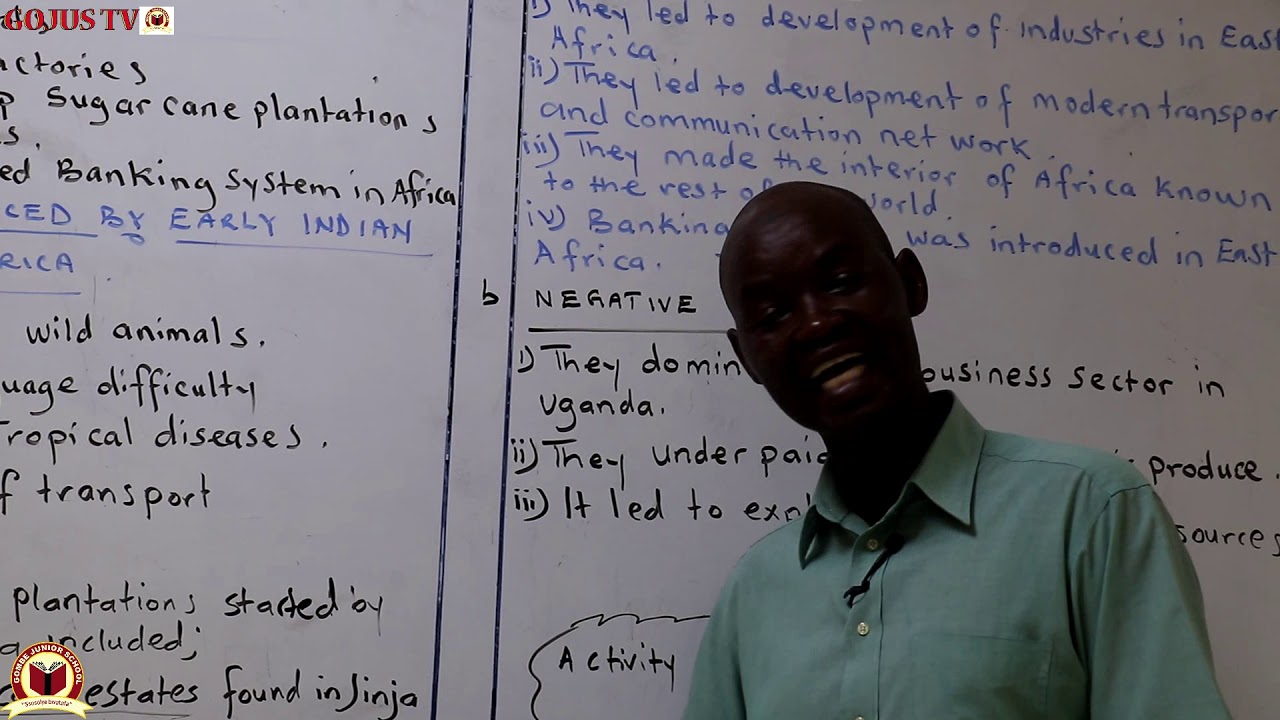 GOJUS TV
actories
Sugar cane plantations
s.
ed Banking system in Africa
CED BY EARLY INDIAN
RICA
wild animals.
uage difficulty
Tropical diseases.
f transport
plantations started by
included;
estates found in Jinja
GOMBE JUNIOR SCHOOL
i) They led to development of industries in East
Africa.
ii) They led to development of modern transpor
and communication net work.
iii) They made the interior of Africa known
to the rest of world.
iv) Banking was introduced in East
Africa.
b NEGATIVE
i) They domin business sector in
Uganda.
ii) They under paid produce.
iii) It led to exp sources
Activity